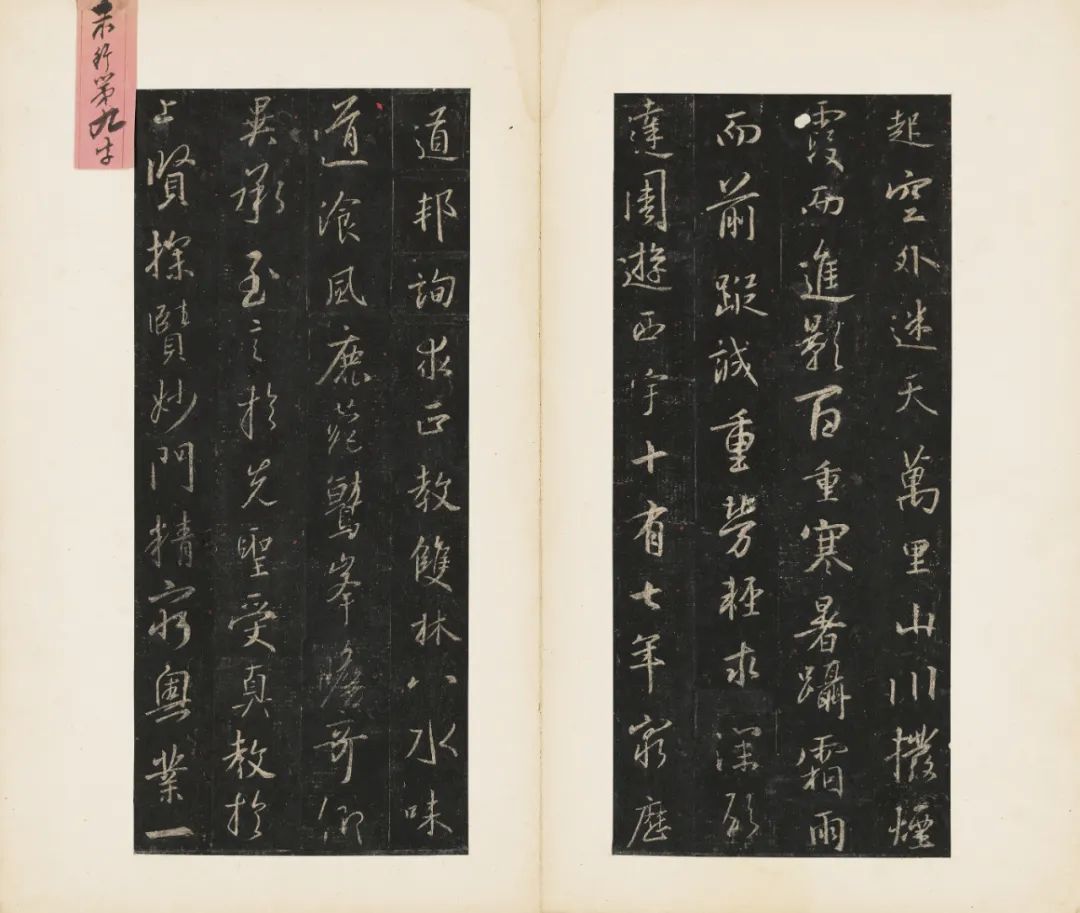 末行第九字
起空外迷天萬里山川撥煙
霞而進影百重寒暑躡霜雨
而前蹤誠重勞輕求深願
達周遊西宇十有七年窮歷
道邦詢求正教雙林八水味
道飡風鹿苑鷲峯瞻奇仰
異承至言於先聖受真教於
上賢探賾妙門精窮奧業一